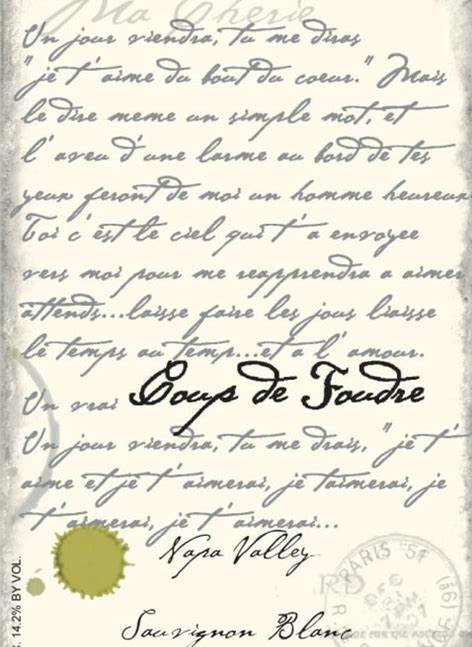 Ma Cherie
Un jour viendra, tu me diras
"je t'aime du bout du coeur." Mais
le dire meme un simple mot, et
l'aveu d'une larme au bord de tes
yeux feront de moi un homme heureux
Toi c'est le ciel qui t'a envoyee
vers moi pour me reapprendra a aimer
attends...laisse faire les jous liaisse
le temps au temp...et a l'amour.
Un vrai Coup de Foudre
Un jour viendra, tu me drais, "je t'
aime et je t'aimerai, je taimerai, je
t'aimerai, je t'aimerai...
Napa Valley
PARIS 51
RD
Sauvignon Blanc
14.2% BY VOL.